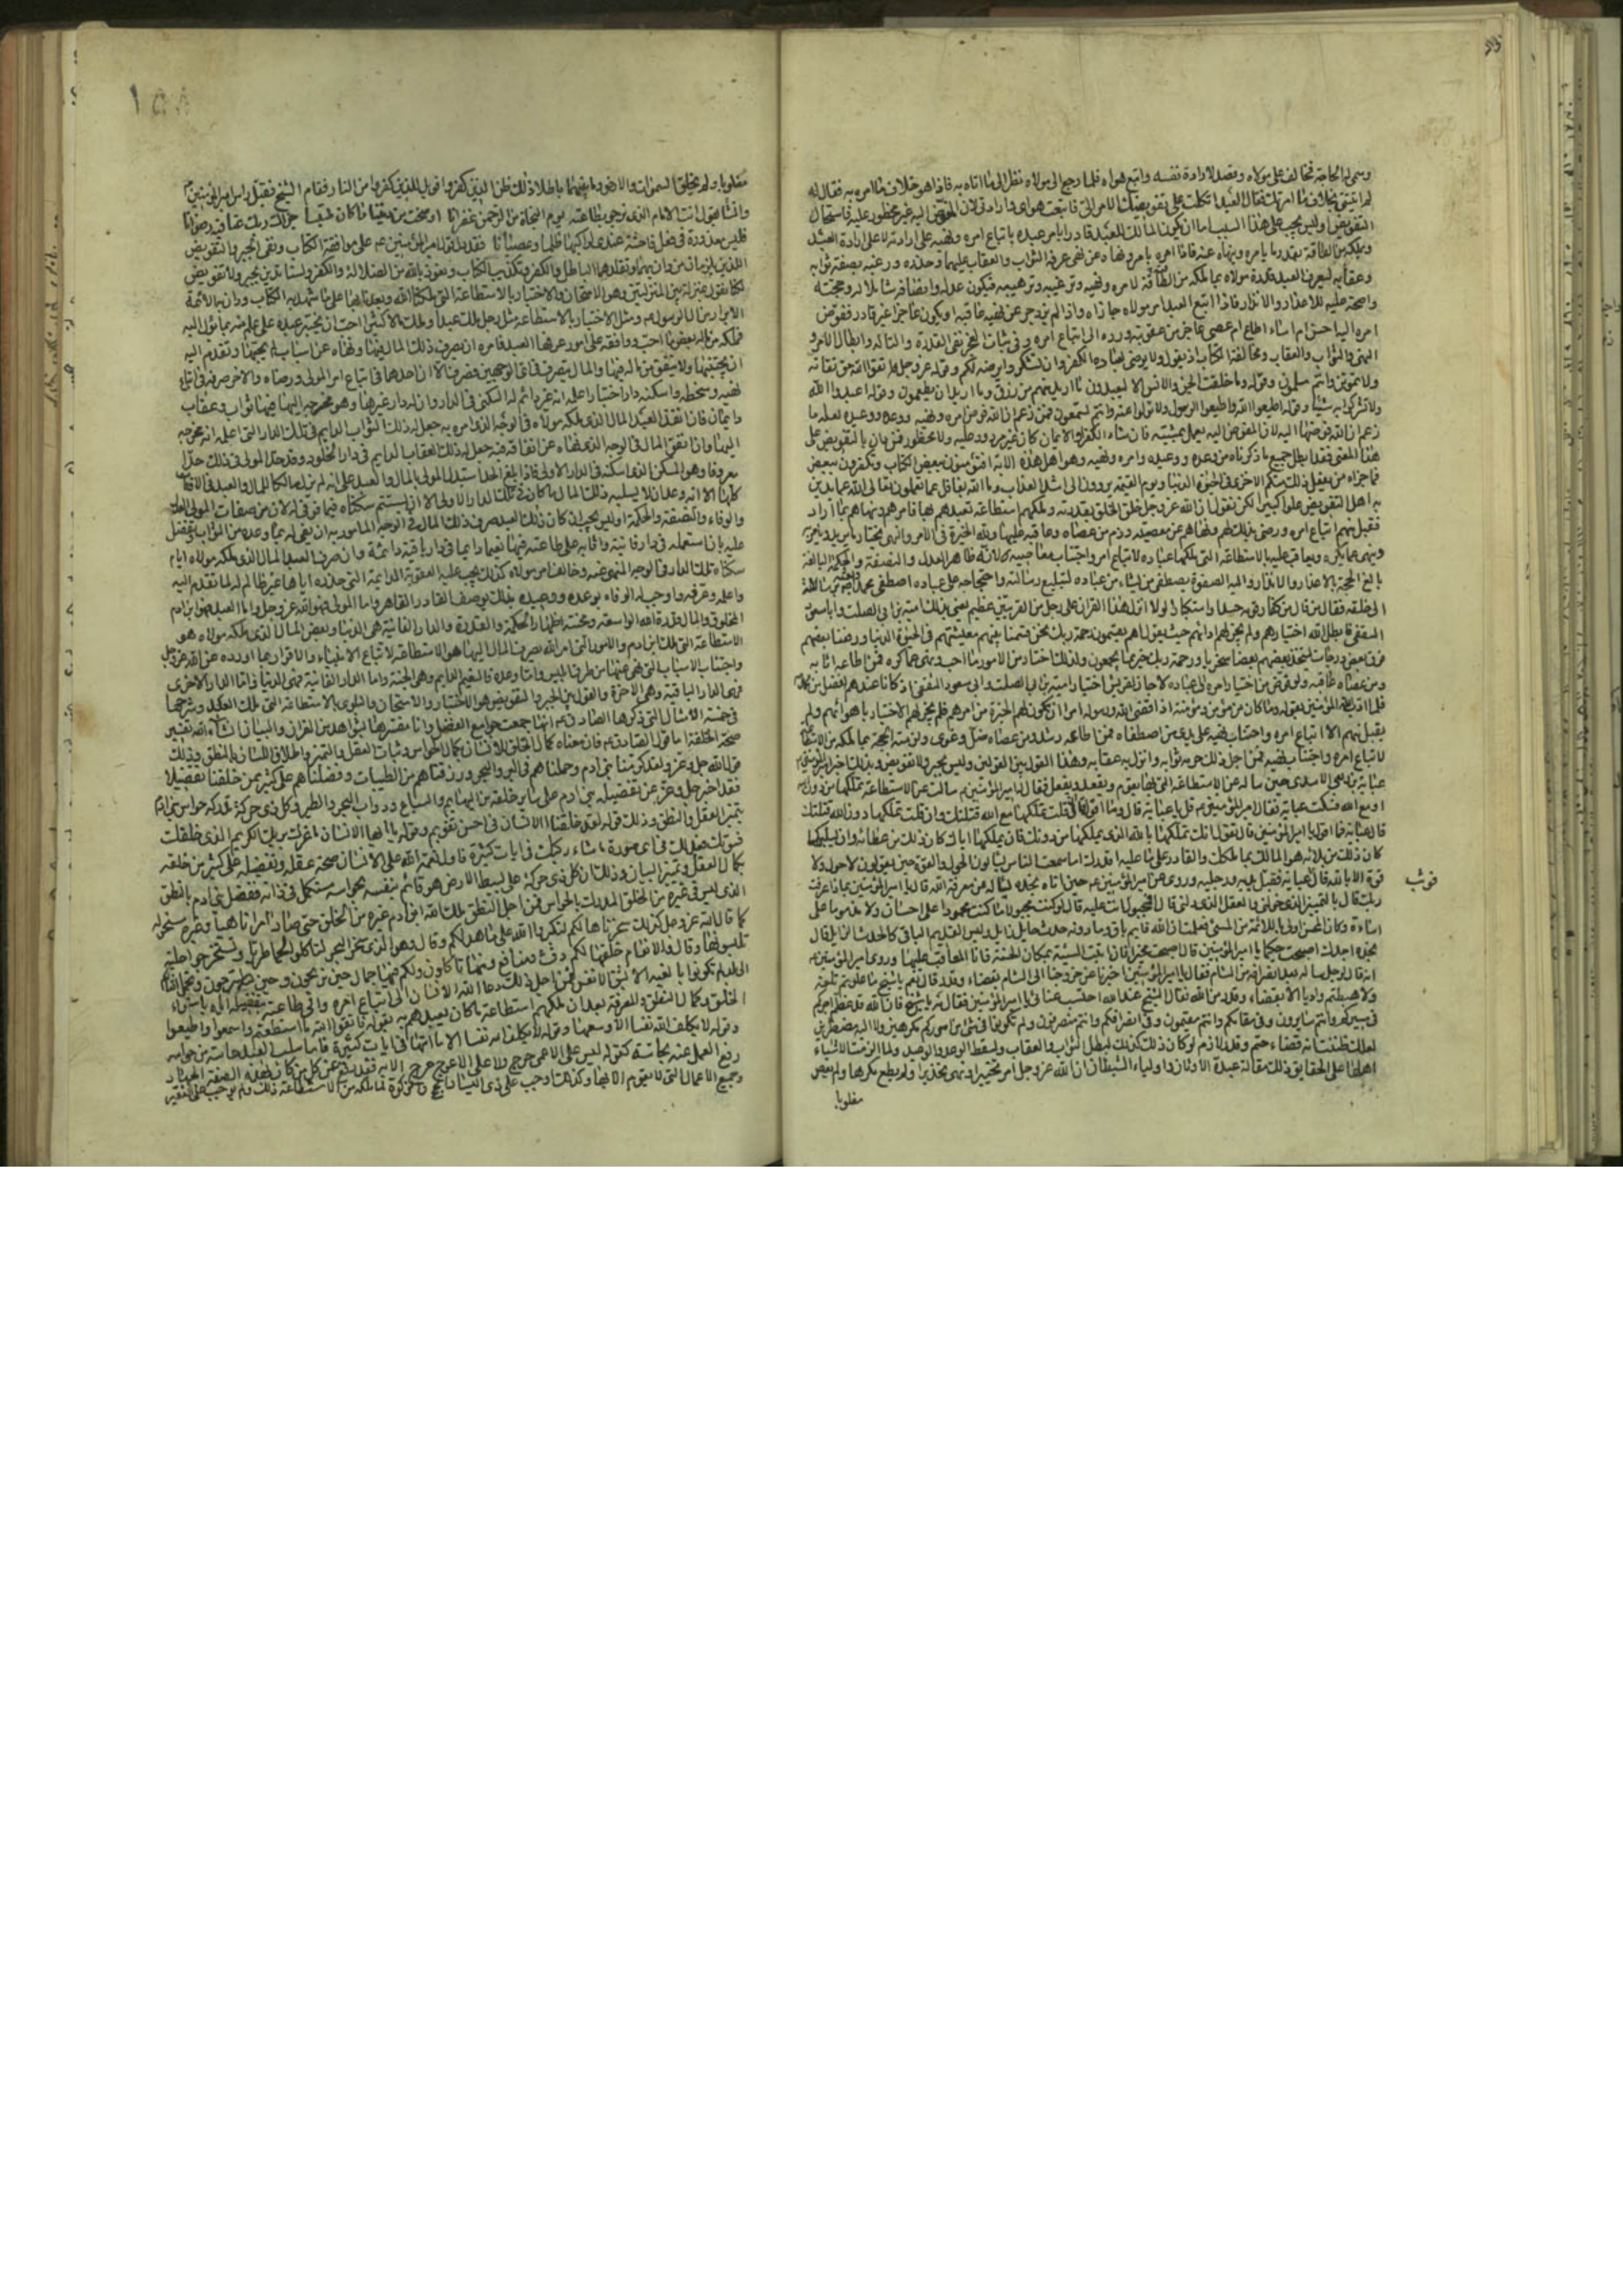 وسمى له الحاجة فخالف على مولاه وقصد لارادة نفسه واتبع هواه فلما رجع الى مولاه نظر الى ما اتاه به فاذا هو خلاف ما امره به فقال له
لم اتيتنى بخلاف ما امرتك فقال العبد اتكلت على تفويضك الامر الى فاتبعت هواى وارادتى لان المفوض اليه غير محظور عليه فاستحال
التفويض اوليس يجب على هذا السبب اما ان يكون المالك للعبد قادرا يامر عبده باتباع امره ونهيه على ارادته لا على ارادة العبد
ويملكه من الطاقة بقدر ما يامره وينهاه عنه فاذا امره بامر ونهاه عن نهى عرفه الثواب والعقاب عليهما وحذره ورغبه بصفة ثوابه
وعقابه ليعرف العبد قدرة مولاه بما ملكه من الطاقة لامره ونهيه وترغيبه وترهيبه فيكون عدله وانصافه شاملا له وحجته
واضحة عليه للاعذار والانذار فاذا اتبع العبد امر مولاه جازاه واذا لم يزدجر عن نهيه عاقبه او يكون عاجزا غير قادر ففوض
امره اليه احسن ام اساء اطاع ام عصى عاجز عن عقوبته ورده الى اتباع امره وفى اثبات العجز نفى القدرة والتاله وابطال الامر و
النهى والثواب والعقاب ومخالفة الكتاب اذ يقول ولا يرضى لعباده الكفر وان تشكروا يرضه لكم وقوله عز وجل اتقوا الله حق تقاته
ولا تموتن الا وانتم مسلمون وقوله وما خلقت الجن والانس الا ليعبدون ما اريد منهم من رزق وما اريد ان يطعمون وقوله اعبدوا الله
ولا تشركوا به شيئا وقوله اطيعوا الله واطيعوا الرسول ولا تولوا عنه وانتم تسمعون فمن زعم ان الله فوض امره ونهيه
هذا المعنى فقد ابطل جميع ما ذكرناه من وعده ووعيده وامره ونهيه وهو من اهل هذه الاية افتؤمنون ببعض الكتاب وتكفرون ببعض
فما جزاء من يفعل ذلك منكم الا خزى فى الحيوة الدنيا ويوم القيمة يردون الى اشد العذاب وما الله بغافل عما تعملون تعالى الله عما يدين
به اهل التفويض علوا كبيرا لكن نقول ان الله عز وجل خلق الخلق بقدرته وملكهم استطاعة تعبدهم بها فامرهم ونهاهم بما اراد
فقبل منهم اتباع امره ورضى بذلك لهم ونهاهم عن معصيته وذم من عصاه وعاقبه عليها ولله الخيرة فى الامر والنهى يختار ما يريد ويامر به
وينهى عما يكره ويعاقب عليه بالاستطاعة التى ملكها عباده لاتباع امره واجتناب معاصيه لانه ظاهر العدل والنصفة والحكمة البالغة
بالغ الحجة بالاعذار والانذار واليه الصفوة يصطفى من يشاء من عباده لتبليغ رسالته واحتجاجه على عباده اصطفى محمدا
الى خلقه فقال من قال من كفار قومه حسدا واستكبارا لولا انزل هذا القران على رجل من القريتين عظيم يعنى بذلك امية بن ابى الصلت وابا مسعود
الثقفى فابطل الله اختيارهم ولم يجز لهم اراءهم حيث يقول اهم يقسمون رحمة ربك نحن قسمنا بينهم معيشتهم فى الحيوة الدنيا ورفعنا بعضهم
فوق بعض درجات ليتخذ بعضهم بعضا سخريا ورحمة ربك خير مما يجمعون ولذلك اختار من الامور ما احب ونهى عما كره فمن اطاعه اثابه
ومن عصاه عاقبه ولو فوض اختيار امره الى عباده لاجاز لقريش اختيار امية بن ابى الصلت وابى مسعود الثقفى اذ كانا عندهم افضل من محمد
فلما ادب الله المؤمنين بقوله وما كان لمؤمن ولا مؤمنة اذا قضى الله ورسوله امرا ان يكون لهم الخيرة من امرهم فلم يجز لهم الاختيار باهوائهم ولم
يقبل منهم الا اتباع امره واجتناب نهيه على يدى من اصطفاه فمن اطاعه رشد ومن عصاه ضل وغوى ولزمته الحجة بما ملكه من الاستطاعة
لاتباع امره واجتناب نهيه فمن اجل ذلك حرمه ثوابه وانزل به عقابه وهذا القول بين القولين وليس بجبر ولا تفويض وبذلك اخبر امير المؤمنين
عباية بن ربعى الاسدى حين ساله عن الاستطاعة التى بها يقوم ويقعد ويفعل فقال له امير المؤمنين سالت عن الاستطاعة تملكها من دون الله
او مع الله فسكت عباية فقال امير المؤمنين قل يا عباية قال وما اقول قال ان قلت تملكها مع الله قتلتك وان قلت تملكها دون الله قتلتك
قال عباية فما اقول يا امير المؤمنين قال تقول انك تملكها بالله الذى يملكها من دونك فان يملكها اياك كان ذلك من عطائه وان يسلبكها
كان ذلك من بلائه هو المالك لما ملكك والقادر على ما عليه اقدرك اما سمعت الناس يسالون الحول والقوة حين يقولون لا حول ولا
قوة الا بالله قال عباية فقبل يديه ورجليه وروى عن امير المؤمنين حين اتاه نجده يساله عن معرفة الله قال يا امير المؤمنين بماذا عرفت
ربك قال بالتمييز الذى خولنى والعقل الذى دلنى قال افمجبول انت عليه قال لو كنت مجبولا ما كنت محمودا على احسان ولا مذموما على
اساءة وكان المحسن اولى باللائمة من المسئ فعلمت ان الله قائم باق وما دونه حدث حايل زايل وليس القديم الباقى كالحدث الزايل قال
نجده اجدك اصبحت حكيما يا امير المؤمنين قال اصبحت مخيرا فان اتيت السيئة بمكان الحسنة فانا المعاقب عليها وروى امير المؤمنين
انه قال لرجل ساله بعد انصرافه من الشام فقال يا امير المؤمنين اخبرنا عن خروجنا الى الشام بقضاء وقدر قال نعم يا شيخ ما علوتم تلعة
ولا هبطتم واديا الا بقضاء وقدر من الله فقال الشيخ عند الله احتسب عنائى يا امير المؤمنين فقال مه يا شيخ فان الله قد عظم اجركم
فى مسيركم وانتم سايرون وفى مقامكم وانتم مقيمون وفى انصرافكم وانتم منصرفون ولم تكونوا فى شئ من اموركم مكرهين ولا اليه مضطرين
لعلك ظننت انه قضاء حتم وقدر لازم لو كان ذلك كذلك لبطل الثواب والعقاب ولسقط الوعد والوعيد ولما الزمت الاشياء
اهلها على الحقايق ذلك مقالة عبدة الاوثان واولياء الشيطان ان الله عز وجل امر تخييرا ونهى تحذيرا ولم يطع مكرها ولم يعص
مغلوبا
١٥٥
مغلوبا ولم يخلق السموات والارض وما بينهما باطلا ذلك ظن الذين كفروا فويل للذين كفروا من النار فقام الشيخ فقبل راس امير المؤمنين
وانشا يقول انت الامام الذى نرجو بطاعته يوم النجاة من الرحمن غفرانا اوضحت من ديننا ما كان ملتبسا جزاك ربك عنا فيه رضوانا
فليس معذرة فى فعل فاحشة عندى لراكبها ظلما وعصيانا فقد دل قول امير المؤمنين ع على موافقة الكتاب ونفى الجبر والتفويض
اللذين يلزمان من دان بهما وتقلدهما الباطل والكفر وتكذيب الكتاب ونعوذ بالله من الضلالة والكفر ولسنا ندين بجبر ولا تفويض
لكنا نقول بمنزلة بين المنزلتين وهو الامتحان والاختبار بالاستطاعة التى ملكنا الله وتعبدنا بها على ما شهد به الكتاب ودان به الائمة
الابرار من ال الرسول ومثل الاختبار بالاستطاعة مثل رجل ملك عبدا وملك مالا كثيرا احب ان يختبر عبده على علم منه بما يؤل اليه
فملكه من ماله بعض ما احب ووقفه على امور عرفها العبد فامره ان يصرف ذلك المال فيها ونهاه عن اسباب لم يحبها وتقدم اليه
ان يجتنبها ولا ينفق من ماله فيها والمال يتصرف فى اى الوجهين فصرف المال احدهما فى اتباع امر المولى ورضاه والاخر صرفه فى اتباع
نهيه وسخطه واسكنه دار اختبار اعلمه انه غير دائم له السكنى فى الدار وان له دارا غيرها وهو مخرجه اليها فيها ثواب وعقاب
دايمان فان انفذ العبد المال الذى ملكه مولاه فى الوجه الذى امره به جعل له ذلك الثواب الدايم فى تلك الدار التى اعلمه انه مخرجه
اليها وان انفق المال فى الوجه الذى نهاه عن انفاقه فيه جعل له ذلك العقاب الدايم فى دار الخلود وقد حد المولى فى ذلك حدا
معروفا وهو المسكن الذى اسكنه فى الدار الاولى فاذا بلغ الحد استبدل المولى بالمال وبالعبد على انه لم يزل مالكا للمال والعبد فى الاوقات
كلها الا انه وعد ان لا يسلبه ذلك المال ما كان فى تلك الدار الاولى الى ان يستتم سكناه فيها فوفى له لان من صفات المولى العدل
والوفاء والنصفة والحكمة اوليس يجب ان كان ذلك العبد صرف ذلك المال فى الوجه المامور به ان يفى له بما وعده من الثواب وتفضل
عليه بان استعمله فى دار فانية واثابه على طاعته فيها نعيما دايما فى دار باقية دائمة وان صرف العبد المال الذى ملكه مولاه ايام
سكناه تلك الدار فى الوجه المنهى عنه وخالف امر مولاه كذلك يجب عليه العقوبة الدائمة التى حذره اياها غير ظالم له لما تقدم اليه
واعلمه وعرفه واوجب له الوفاء بوعده ووعيده بذلك يوصف القادر القاهر واما المولى فهو الله عز وجل واما العبد فهو ابن ادم
المخلوق والمال قدرة الله الواسعة ومحنته اظهار الحكمة والقدرة والدار الفانية هى الدنيا وبعض المال الذى ملكه مولاه هو
الاستطاعة التى ملك ابن ادم والامور التى امر الله بصرف المال اليها هو الاستطاعة لاتباع الانبياء والاقرار بما اوردوه عن الله عز وجل
واجتناب الاسباب التى نهى عنها هى طرق ابليس واما وعده فالنعيم الدايم وهى الجنة واما الدار الفانية فهى الدنيا واما الدار الاخرى
فهى الدار الباقية وهى الاخرة والقول بين الجبر والتفويض هو الاختبار والامتحان والبلوى بالاستطاعة التى ملك العبد وشرحها
فى خمسة الامثال التى ذكرها الصادق ع انها جمعت جوامع الفضل وانا مفسرها بشواهد من القران والبيان ان شاء الله تفسير
صحة الخلقة اما قول الصادق ع فان معناه كمال الخلق للانسان بكمال الحواس وثبات العقل والتمييز واطلاق اللسان بالنطق وذلك
قول الله جل وعز ولقد كرمنا بنى ادم وحملناهم فى البر والبحر ورزقناهم من الطيبات وفضلناهم على كثير ممن خلقنا تفضيلا
فقد اخبر جل وعز عن تفضيله بنى ادم على ساير خلقه من البهايم والسباع ودواب البحر والطير وكل ذى حركة تدركه حواس بنى ادم
بتمييز العقل والنطق وذلك قوله لقد خلقنا الانسان فى احسن تقويم وقوله يا ايها الانسان ما غرك بربك الكريم الذى خلقك
فسويك فعدلك فى اى صورة ما شاء ركبك فى ايات كثيرة فاول نعمة الله على الانسان صحة عقله وتفضيله على كثير من خلقه
بكمال العقل وتمييز البيان وذلك ان كل ذى حركة على بسيط الارض هو قائم بنفسه بحواسه مستكمل فى ذاته ففضل بنى ادم بالنطق
الذى ليس فى غيره من الخلق المدرك بالحواس فمن اجل النطق ملك الله ابن ادم غيره من الخلق حتى صار امرا ناهيا وغيره مسخر له
كما قال الله عز وجل كذلك سخرناها لكم لتكبروا الله على ما هداكم وقال وهو الذى سخر البحر لتاكلوا منه لحما طريا وتستخرجوا حلية
تلبسونها وقال والانعام خلقها لكم فيها دفء ومنافع ومنها تاكلون ولكم فيها جمال حين تريحون وحين تسرحون وتحمل اثقالكم
الى بلد لم تكونوا بالغيه الا بشق الانفس فمن اجل ذلك دعا الله الانسان الى اتباع امره والى طاعته بتفضيله اياه باستواء
الخلق وكمال النطق والمعرفة بعد ان ملكهم استطاعة ما كان تعبدهم به بقوله فاتقوا الله ما استطعتم واسمعوا واطيعوا
وقوله لا يكلف الله نفسا الا وسعها وقوله لا يكلف الله نفسا الا ما اتيها فى ايات كثيرة فاذا سلب العبد حاسة من حواسه
رفع العمل عنه بحاسته كقوله ليس على الاعمى حرج ولا على الاعرج حرج الاية فقد رفع عن كل من كان بهذه الصفة الجهاد
وجميع الاعمال التى لا يقوم الا بها وكذلك اوجب على ذى اليسار الحج والزكوة لما ملكه من الاستطاعة ذلك ولم يوجب على الفقير